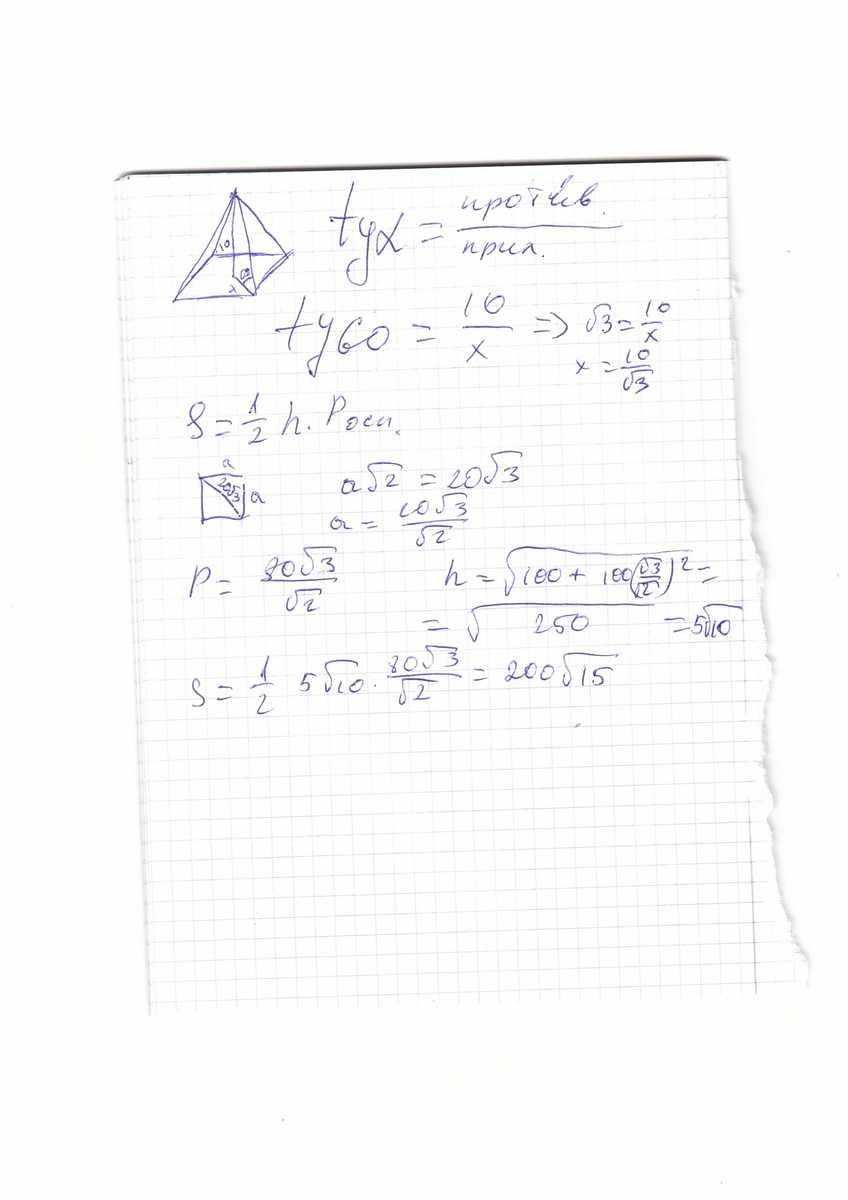 10 60 x
tgα = против. / прил.
tg60 = 10/x => √3 = 10/x
x = 10/√3
S = 1/2 h · Pосн.
a
20√3 a
a√2 = 20√3
a = 20√3/√2
P = 80√3/√2
h = √(100 + 100(√3/√2)²) =
= √250 = 5√10
S = 1/2 5√10 · 80√3/√2 = 200√15